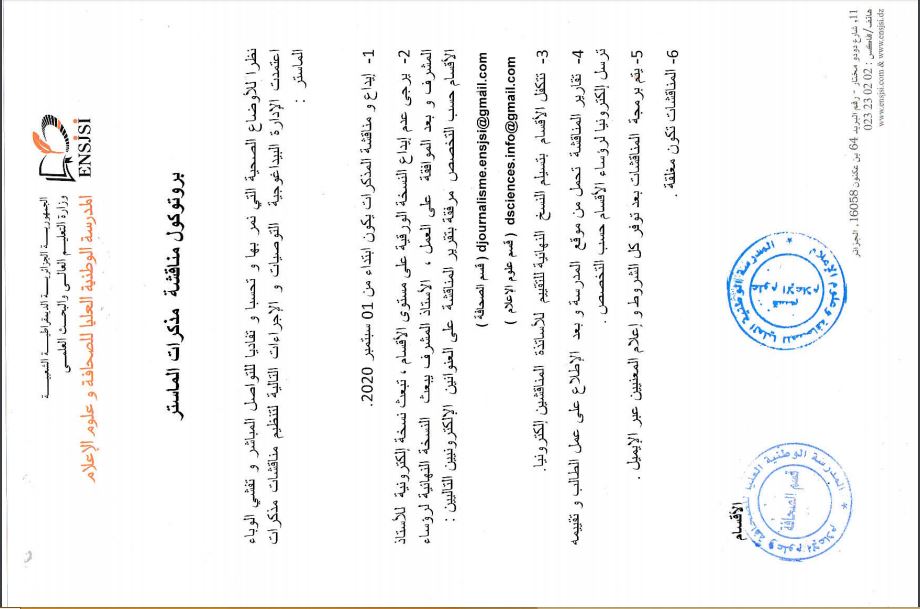 الجمهوريـة الجزائريـة الديمقراطيـة الشعبيـة
وزارة التعليـم العالـي والبحـث العلمـي
ENSJSI
المدرسة الوطنية العليا للصحافة و علوم الإعلام
بروتوكول مناقشة مذكرات الماستر
نظرا للاوضاع الصحية التي نمر بها و تحسبا و تفاديا للتواصل المباشر و تفشي الوباء
اعتمدت الإدارة البيداغوجية التوصيات و الإجراءات التالية لتنظيم مناقشات مذكرات
الماستر :
1- إيداع و مناقشة المذكرات يكون ابتداء من 01 سبتمبر 2020.
2- يرجى عدم إيداع النسخة الورقية على مستوى الأقسام ، تبعث نسخة إلكترونية للأستاذ
المشرف و بعد الموافقة على العمل ، الأستاذ المشرف يبعث النسخة النهائية لروساء
الأقسام حسب التخصص مرفقة بتقرير المناقشة على العنوانين الإلكترونيين التاليين :
djournalisme.ensjsi@gmail.com ( قسم الصحافة )
dsciences.info@gmail.com ( قسم علوم الاعلام )
3- تتكفل الأقسام بتسليم النسخ النهائية للتقييم للأساتذة المناقشين إلكترونيا.
4- تقارير المناقشة تحمل من موقع المدرسة و بعد الإطلاع على عمل الطالب و تقييمه
ترسل إلكترونيا لروساء الأقسام حسب التخصص .
5- يتم برمجة المناقشات بعد توفر كل الشروط و إعلام المعنيين عبر الإيميل .
6- المناقشات تكون مغلقة .
الأقسام
المدرسة الوطنية العليا للصحافة وعلوم الإعلام
قسم الصحافة
المدرسة الوطنية العليا للصحافة وعلوم الإعلام
11، شارع دودو مختار - رقم البريد 64 بن عكنون 16058، الجزائر
هاتف/فاكس : 02 02 23 023
www.ensjsi.com & www.ensjsi.dz